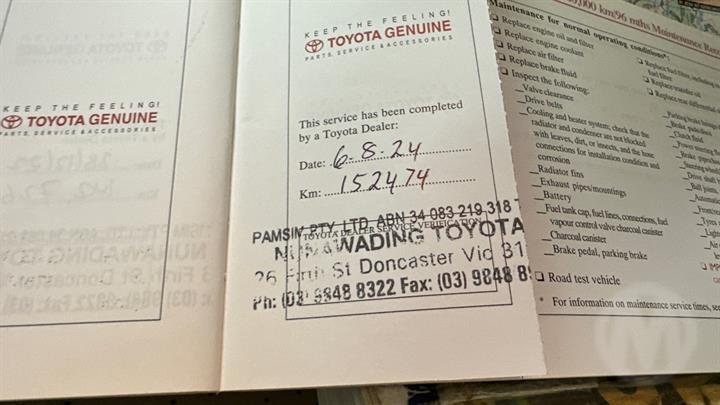 KEEP THE FEELING!
TOYOTA GENUINE
PARTS, SERVICE & ACCESSORIES
KEEP THE FEELING!
TOYOTA GENUINE
PARTS, SERVICE & ACCESSORIES
This service has been completed
by a Toyota Dealer:
Date: 6-8-24
Km: 152474
PAMSIM PTY. LTD. ABN 34 083 219 318
TOYOTA DEALER SERVICE VERIFICATION
NUNAWADING TOYOTA
26 Firth St Doncaster Vic 31
Ph: (03) 9848 8322 Fax: (03) 9848 8
000 km/96 mths Maintenance
Maintenance for normal operating conditions*:
Replace engine oil and filter
Replace engine coolant
Replace air filter
Replace brake fluid
Inspect the following:
Valve clearance
Drive belts
Cooling and heater system; check that the
radiator and condenser are not blocked
with leaves, dirt, or insects, and the hose
connections for installation condition and
corrosion
Radiator fins
Exhaust pipes/mountings
Battery
Fuel tank cap, fuel lines, connections, fuel
vapour control valve charcoal canister
Charcoal canister
Brake pedal, parking brake
Road test vehicle
* For information on maintenance service times, see
Replace fuel filter, including
fuel filter
Replace transfer oil
Replace rear differential